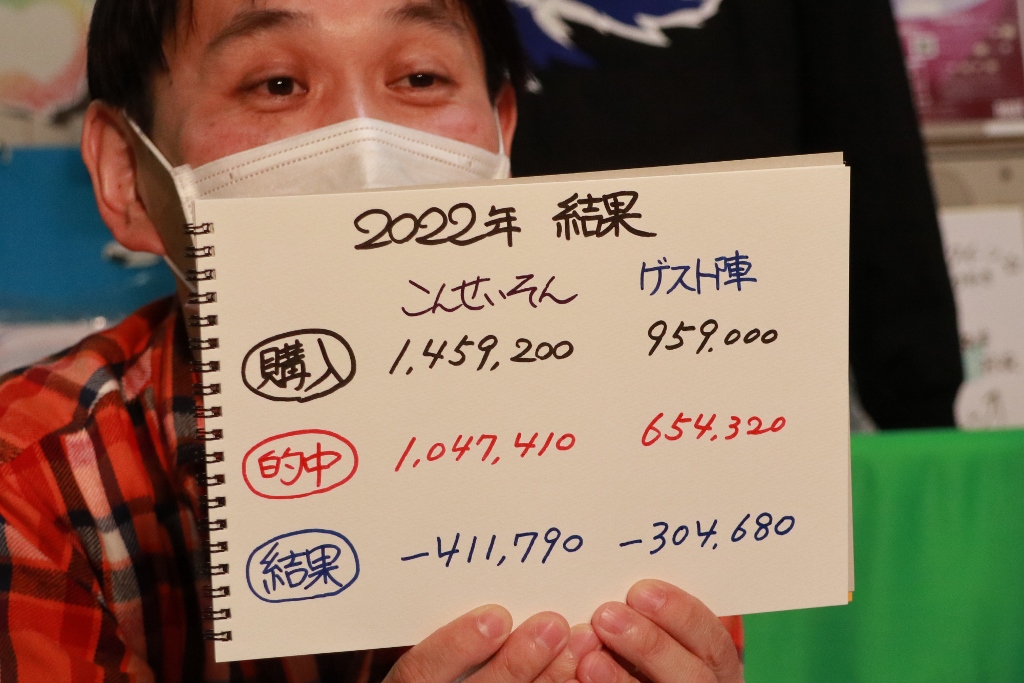 2022年 結果
こんせいそん ゲスト陣
購入 1,459,200 959.000
的中 1,047,410 654,320
結果 -411,790 -304,680